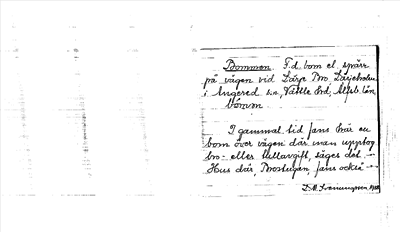 Bommen F.d. bom el. spärr
på vägen vid Lärje Bro, Lärjeholm
i Angered s:n Vättle hd, Älvsb. län
bòmən
I gammal tid fans här en
bom över vägen där man upptog
bro- eller tullavgift, säges det. -
Hus där, Brostugan, fans också -